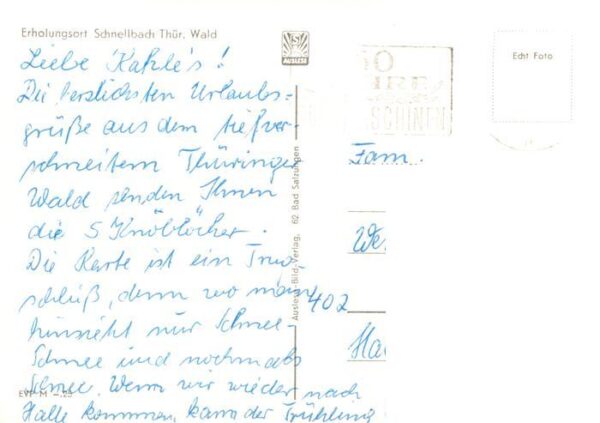 Erholungsort Schnellbach Thür. Wald
Liebe Kahle's!
Die herzlichsten Urlaubs=
grüße aus dem tiefver-
schneitem Thüringer
Wald senden Ihnen
die 5 Knöblöcher.
Die Karte ist ein Trug
schluß, denn wo man
hinsieht nur Schnee-
Schnee und nochmals
Schnee. Wenn wir wieder nach
Halle kommen, kann der Frühling
EVP M -.25
AUSLESE
Auslese-Bild-Verlag. 62 Bad Salzungen
Echt Foto
SCHINEN
Fam.
We
402
Ha